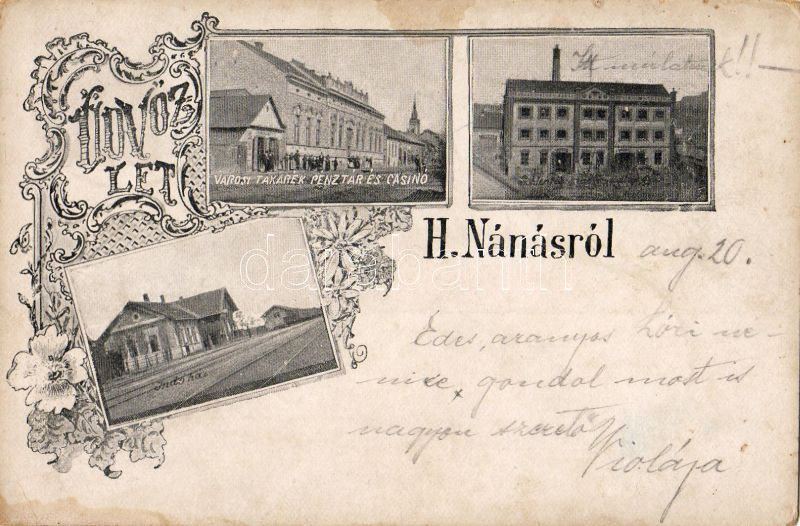 Üdvöz
let
VÁROSI TAKARÉK PÉNZTÁR ÉS CASINÓ
Itt mulatunk!! —
H. Nánásról
aug. 20.
Indóház.
Édes, aranyos Lóri ne-
nike, gondol most is
nagyon szerető
Violája
darabanth